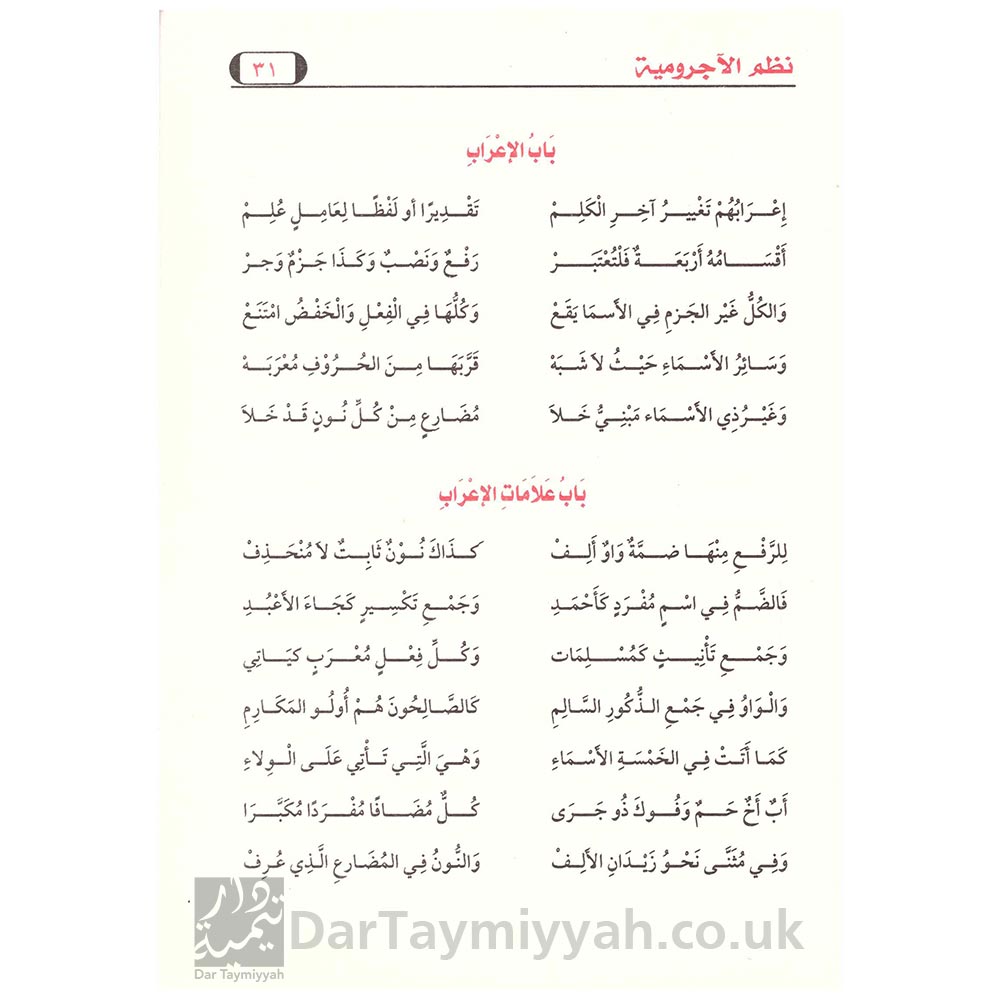 نظم الآجرومية ٣١
بَابُ الإِعْرَابِ
إِعْرَابُهُمْ تَغْيِيرُ آخِرِ الْكَلِمْ تَقْدِيرًا أو لَفْظًا لِعَامِلٍ عُلِمْ
أَقْسَامُهُ أَرْبَعَةٌ فَلْتُعْتَبَرْ رَفْعٌ وَنَصْبٌ وَكَذَا جَزْمٌ وَجرْ
وَالكُلُّ غَيْر الجَزمِ فِي الأَسمَا يَقَعْ وَكُلُّهَا فِي الْفِعْلِ وَالْخَفْضُ امْتَنَعْ
وَسَائِرُ الأَسْمَاءِ حَيْثُ لاَ شَبَهْ قَرَّبَهَا مِنَ الحُرُوْفِ مُعْرَبَهْ
وَغَيْرُ ذِي الأَسْمَاء مَبْنِيٌّ خَلاَ مُضَارِعٍ مِنْ كُلِّ نُونٍ قَدْ خَلاَ
بَابُ عَلاَمَاتِ الإِعْرَابِ
لِلرَّفْعِ مِنْهَا ضمَّةٌ وَاوٌ أَلِفْ كذَاكَ نُوْنٌ ثَابِتٌ لاَ مُنْحَذِفْ
فَالضَّمُّ فِي اسْمٍ مُفْرَدٍ كَأَحْمَدِ وَجَمْعِ تَكْسِيرٍ كَجَاءَ الأَعْبُدِ
وَجَمْعِ تَأْنِيثٍ كَمُسْلِمَات وَكُلِّ فِعْلٍ مُعْرَبٍ كيَاتِي
وَالْوَاوُ فِي جَمْعِ الذُّكُورِ السَّالِمِ كَالصَّالِحُونَ هُمْ أُولُو المَكَارِمِ
كَمَا أَتَتْ فِي الخَمْسَةِ الأَسْمَاءِ وَهْيَ الَّتِي تَأْتِي عَلَى الْوِلاءِ
أَبٌ أَخٌ حَمٌ وَفُوكَ ذُو جَرَى كُلٌّ مُضَافًا مُفْرَدًا مُكَبَّرَا
وَفِي مُثَنَّى نَحْوُ زَيْدَانِ الأَلِفْ وَالنُّونُ فِي المُضَارِعِ الَّذِي عُرِفْ
دار تيمية
Dar Taymiyyah
DarTaymiyyah.co.uk